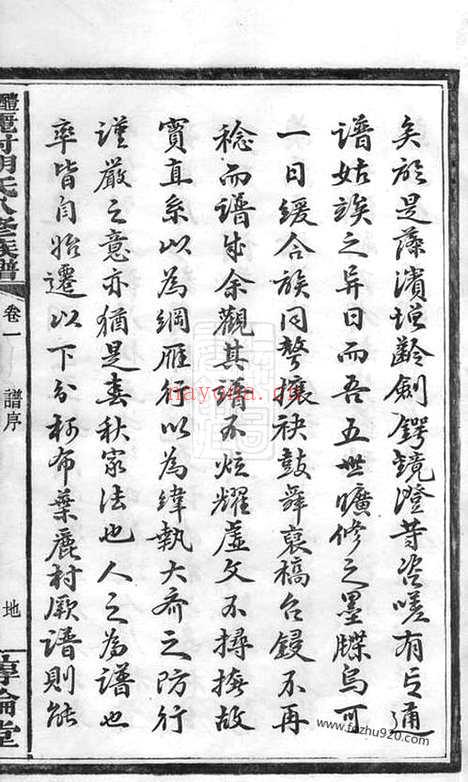 矣於是藻濱増齡劍鍔鏡澄等咨嗟有与通
譜姑族之异日而吾五世曠修之墨牒烏可
一日缓合族同聲攘袂鼓舞裒槁合鋟不再
稔而譜成余觀其譜不炫耀虛文不撏撦故
實直系以為綱雁行以為緯執大宗之防行
謹嚴之意亦猶是春秋家法也人之為譜也
率皆自始遷以下分柯布葉麗村厥譜則能
醴麗村胡氏八修族譜
卷一
譜序
地
敦倫堂
nayona.cn
www.fozhu920.com